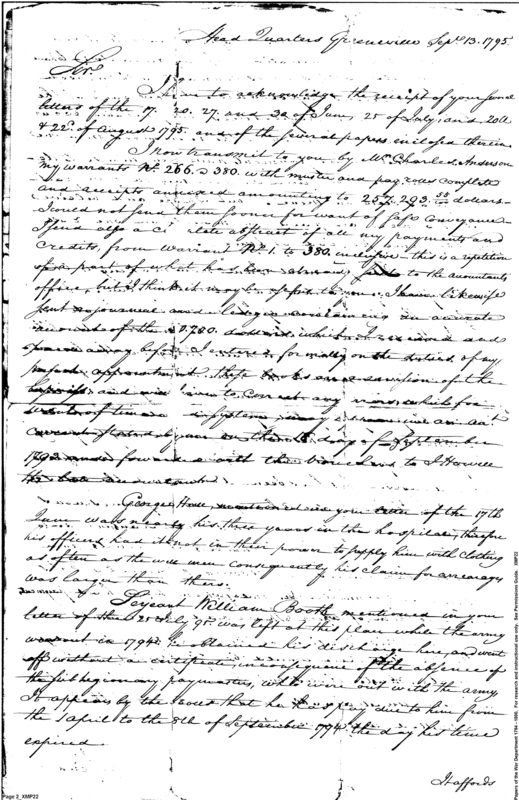 Head Quarters Greeneville Sepr. 13. 1795.
Sir,
I have to acknowledge the receipt of your several
letters of the 17. 20. 27. and 30 of June, 25 of July, and 20th
& 22d. of August 1795. and of the several papers inclosed therein.
I now transmit to you by Mr. Charles Anderson
my warrants No. 266. @ 380. with muster and pay rolls complete
and receipts annexed amounting to 257,293 dollars.
I could not send them sooner for want of safe conveyance.
I send also a abstract of all my payments and
credits, from Warrant No. 1. to 380. inclusive. this is a repetition
of a part of what has been to the accountants
office, but I think it may be to you. I have likewise
sent a journal and Ledger containing an accurate
account of the dollars which I received and
before I entered formally on the duties of my
present appointment. These books are of the
and will to correct any which for
want of time
current stated by me on the day of September
and forwarded with the Vouchers to J Howell
the late accountant.
George House, mentioned in your letter of the 17th
June was nearly his three years in the hospital, therefore
his officers had it not in their power to supply him with clothing
as often as the well men consequently his claim for arrearages
was larger than theirs.
Serjeant William Booth mentioned in your
letter of the 25 July 95 was left at this place while the army
went out in 1794. he obtained his discharge here, and went
off without a certificate, in consequence of the absence of
the sub legionary paymasters, who were out with the army,
It appears by the books that he has pay due to him from
the 1 april to the 8th of September 1794 the day his time
expired.
Staffords
Page 2_XMP22
Papers of the War Department 1784 - 1800. For research and instructional use only. See Permissions Guide. XMP22